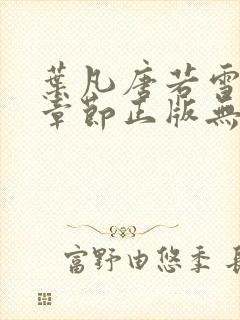 葉凡唐若雪
章節正版無
富野由悠季